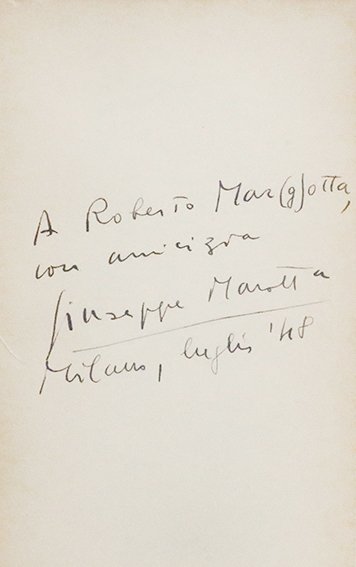 A Roberto Mar(g)otta,
con amicizia
Giuseppe Marotta
Milano, luglio '48